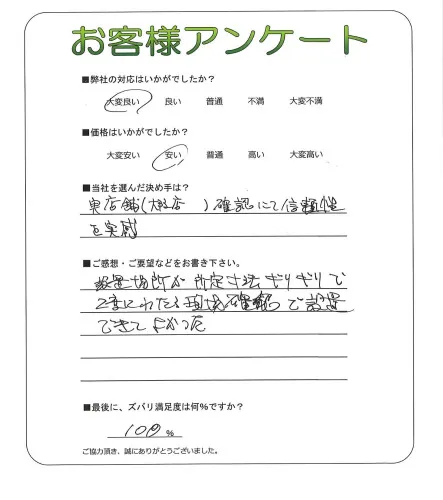 お客様アンケート
■弊社の対応はいかがでしたか?
大変良い 良い 普通 不満 大変不満
■価格はいかがでしたか?
大変安い 安い 普通 高い 大変高い
■当社を選んだ決め手は?
実店舗( 店 )確認にて信頼性
を実感
■ご感想・ご要望などをお書き下さい。
設置場所が所定寸法ギリギリで
2度にわたる現場確認で設置
できてよかった
■最後に、ズバリ満足度は何%ですか?
100 %
ご協力頂き、誠にありがとうございました。